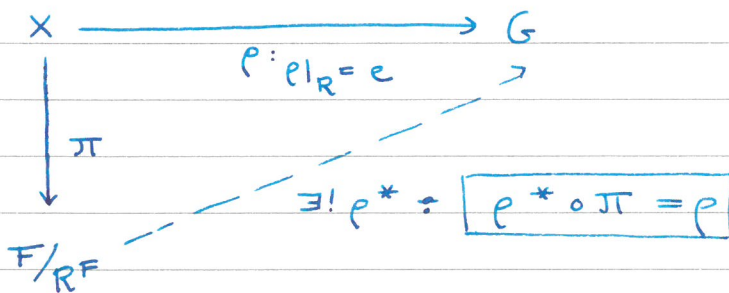 X G
ρ : ρ|_R = e
π
∃! ρ* : ρ* ∘ π = ρ
F/R^F